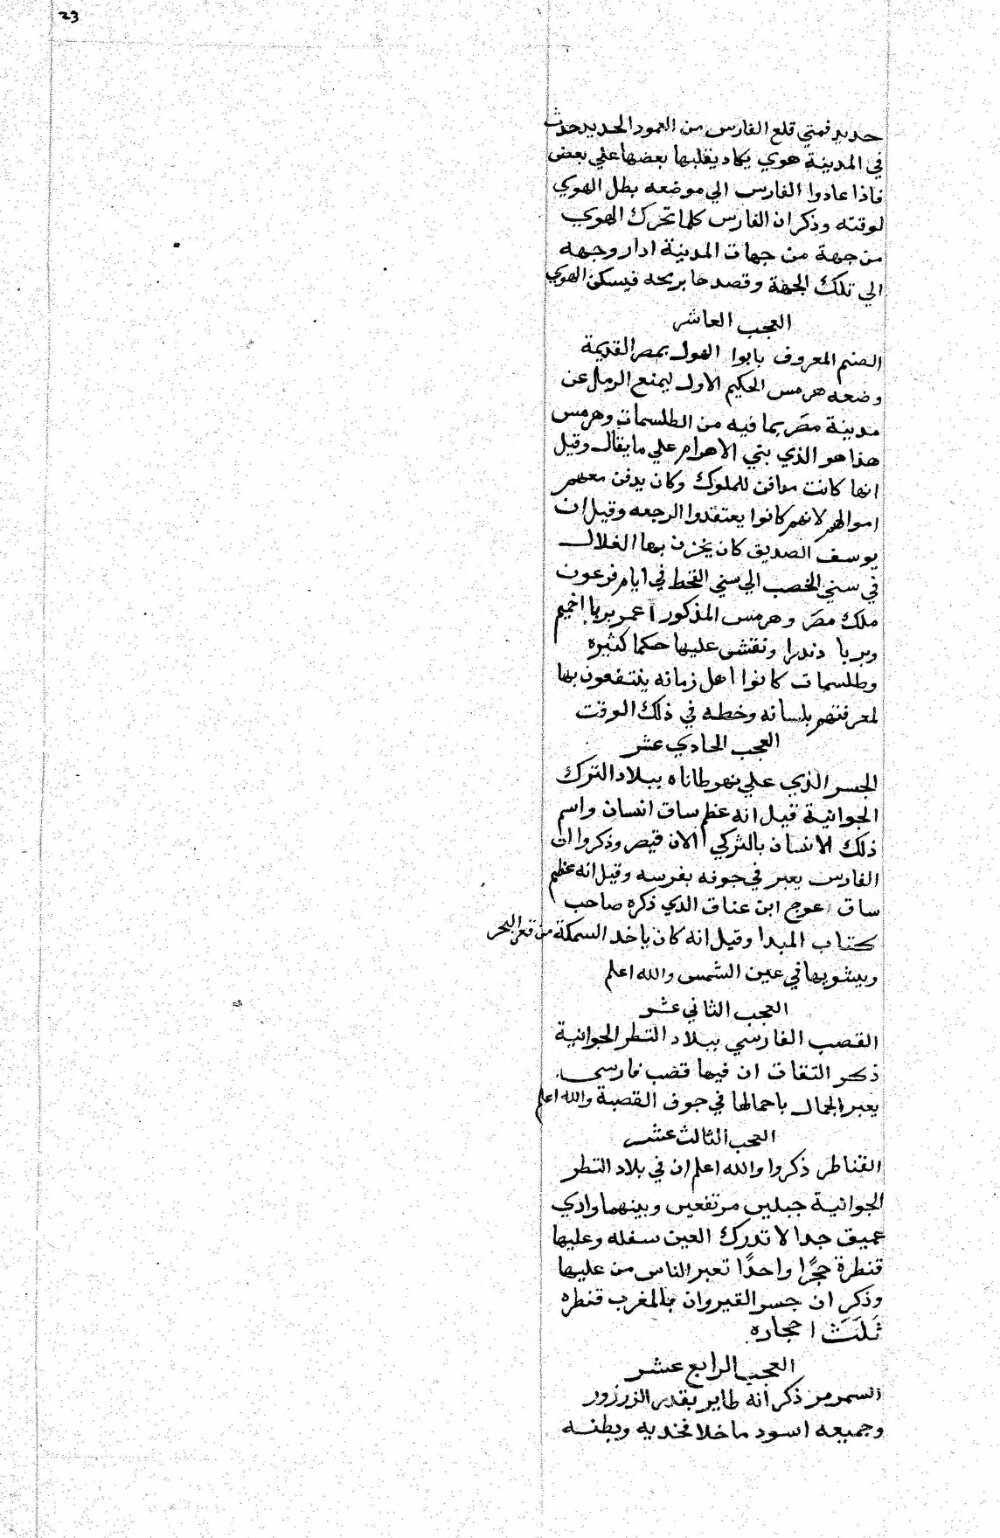 23
حديد فمتي قلع الفارس من العمود الحديد حدث
في المدينة هوي يكاد يقلبها بعضها علي بعض
فاذا عادوا الفارس الي موضعه بطل الهوي
لوقته وذكر ان الفارس كلما تحرك الهوي
من جهة من جهات المدينة ادار وجهه
الي تلك الجهة وقصدها بريحه فيسكن الهوي
العجب العاشر
الصنم المعروف بابوا الهول بمصر القديمة
وضعه هرمس الحكيم الاول ليمنع الرمل عن
مدينة مصر بما فيه من الطلسمات وهرمس
هذا هو الذي بني الاهرام علي ما يقال وقيل
انها كانت مدافن للملوك وكان يدفن معهم
اموالهم لانهم كانوا يعتقدوا الرجعه وقيل ان
يوسف الصديق كان يخزن بها الغلال
في سني الخصب الي سني القحط في ايام فرعون
ملك مصر وهرمس المذكور اعمر بربا اخميم
وبربا دندرا ونقشى عليها حكما كثيره
وطلسمات كانوا اهل زمانه ينتفعون بها
لمعرفتهم بلسانه وخطه في ذلك الوقت
العجب الحادي عشر
الجسر الذي علي نهر طاناه ببلاد الترك
الجوانية قيل انه عظم ساق انسان واسم
ذلك الانسان بالتركي الان قيصر وذكروا ان
الفارس يعبر في جوفه بفرسه وقيل انه عظم
ساق اعوج ابن عناق الذي ذكره صاحب
كتاب المبدا وقيل انه كان ياخد السمكة من قعر البحر
ويشويها في عين الشمس والله اعلم
العجب الثاني عشر
القصب الفارسي ببلاد التطر الجوانية
ذكر الثقات ان فيها قضب فارسي
يعبر الجمال باحمالها في جوف القصبة والله اعلم
العجب الثالث عشر
القناطر ذكروا والله اعلم ان في بلاد التطر
الجوانية جبلين مرتفعين وبينهما وادي
عميق جدا لا تدرك العين سفله وعليها
قنطرة حجرًا واحدًا تعبر الناس من عليها
وذكر ان جسر القيروان بالمغرب قنطره
ثَلَثَ احجاره
العجب الرابع عشر
السمرمر ذكر انه طاير بقدر الزرزور
وجميعه اسود ما خلا فخديه وبطنه